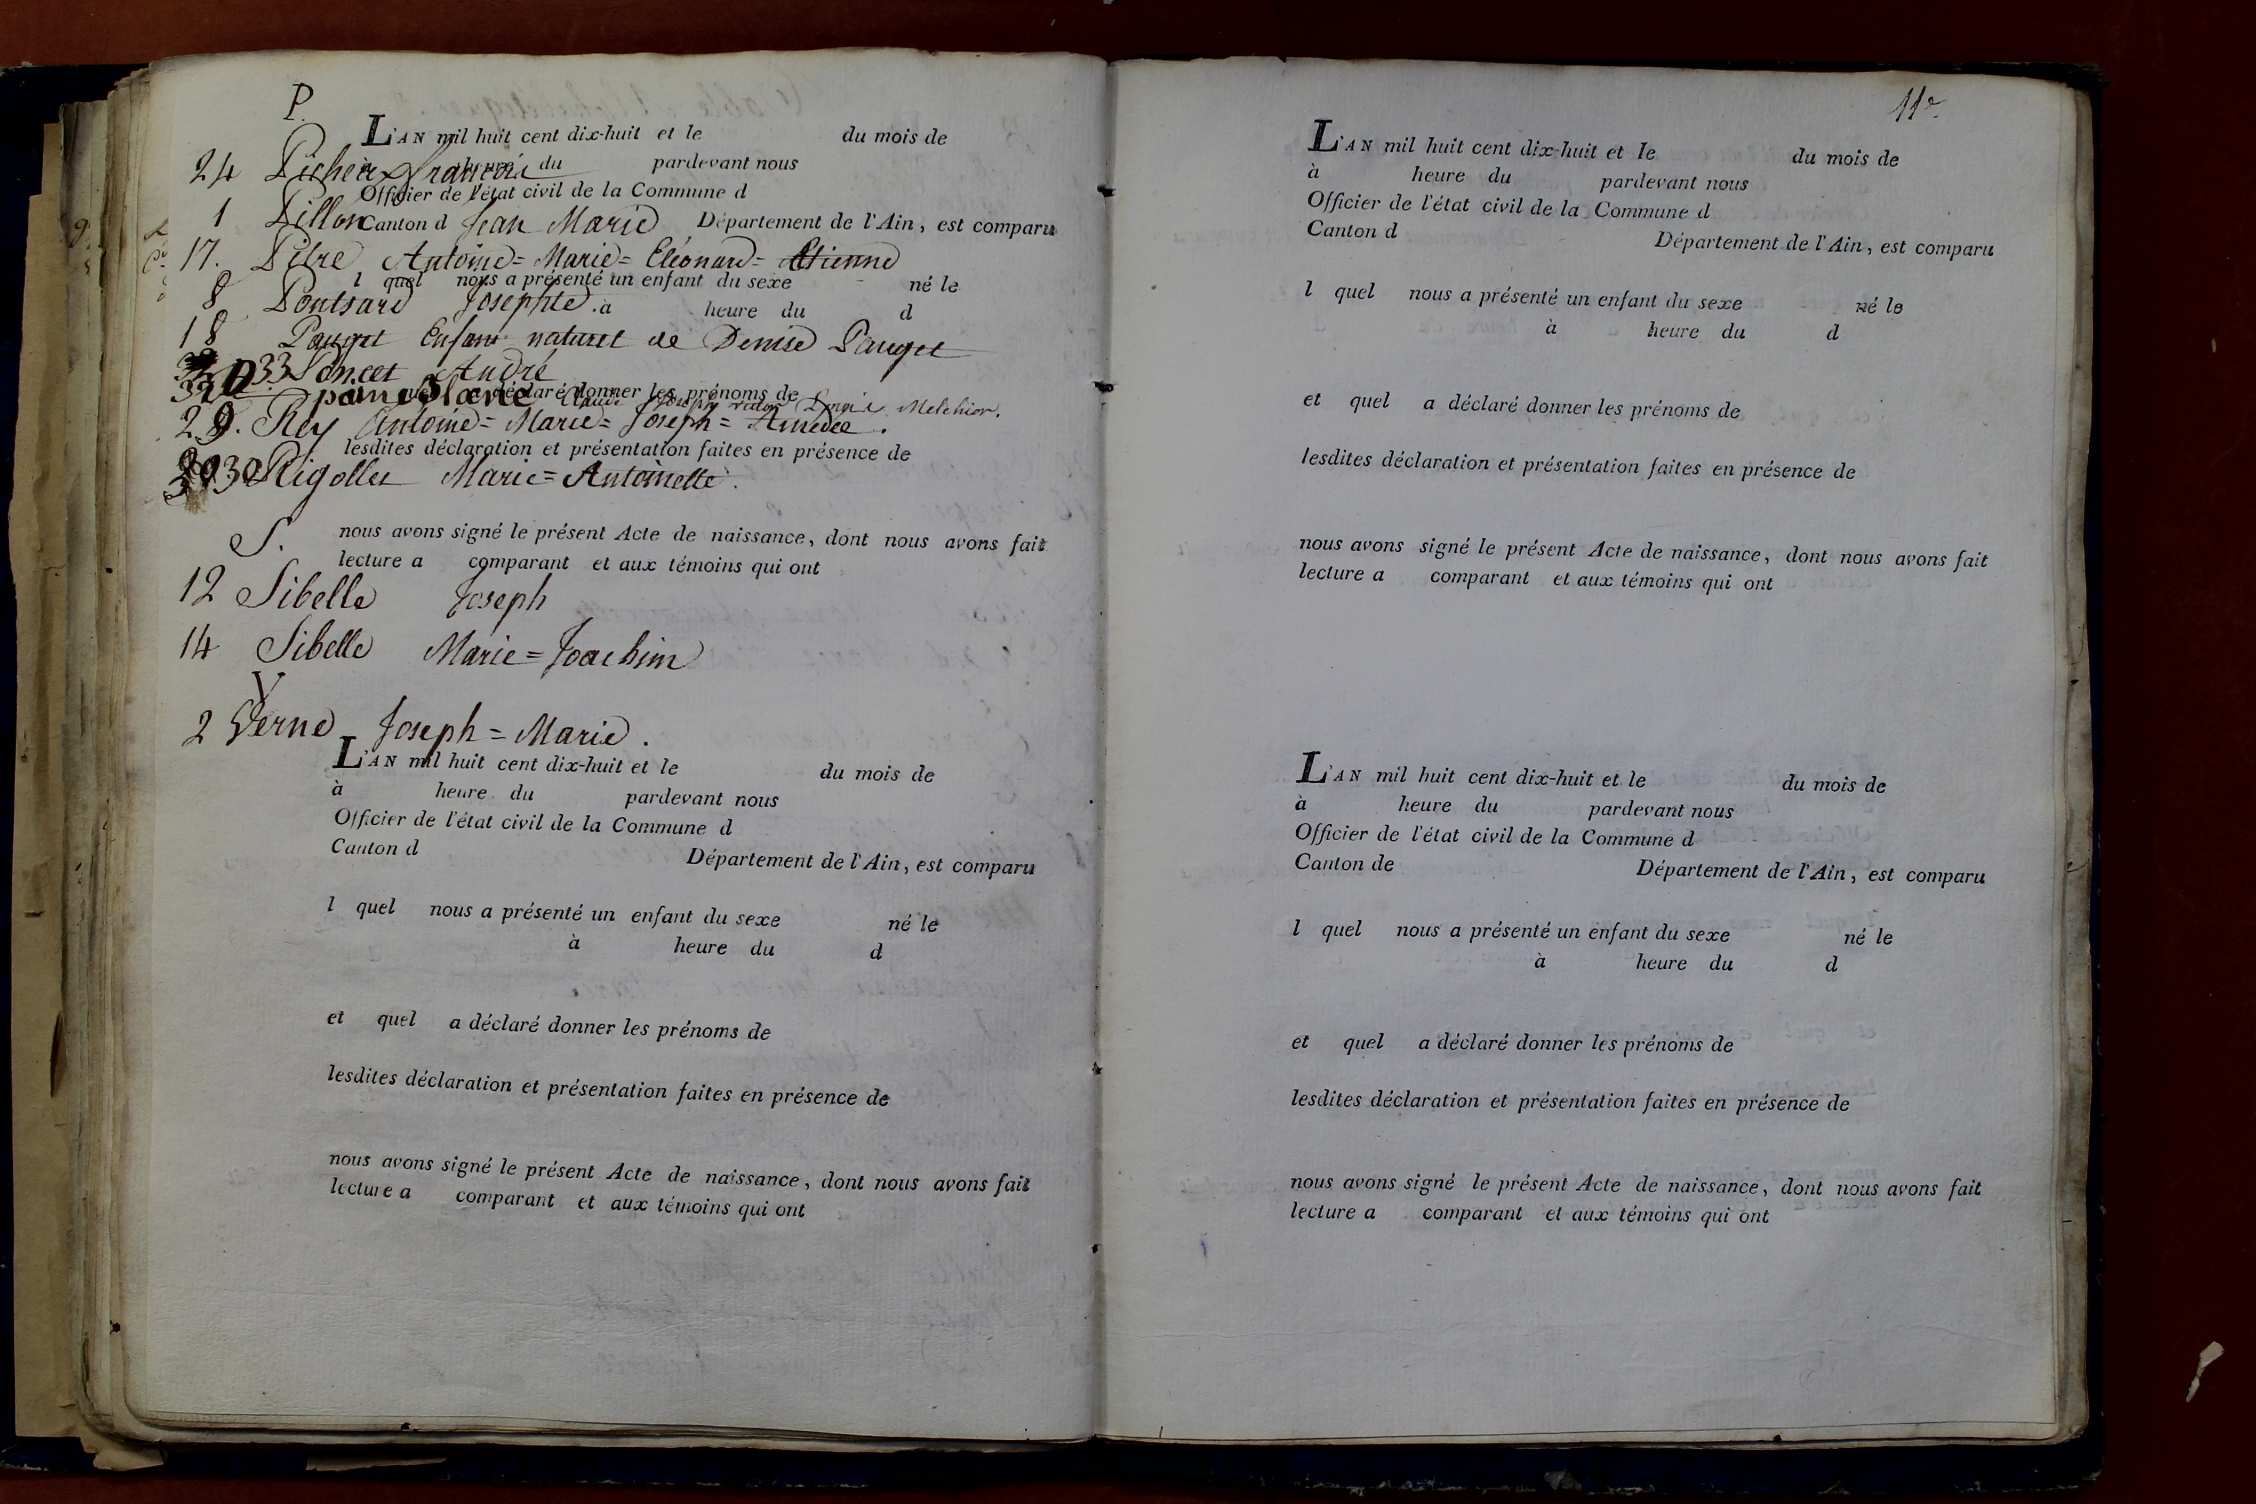 P.
L'AN mil huit cent dix-huit et le du mois de
à heure du pardevant nous
24 Picheux
Officier de l'état civil de la Commune d
1 Pillon Jean Marie
Canton d Département de l'Ain, est comparu
17. Pitre Antoine = Marie = Eléonard = Etienne
l quel nous a présenté un enfant du sexe né le
8 Pontsard Josephte.
à heure du d
18 Pauget Enfant naturel de Denise Pauget
33 Poncet André
quel a déclaré donner les prénoms de
Claude Joseph Melchior.
29. Rey Antoine = Marie = Joseph = Amedée.
lesdites déclaration et présentation faites en présence de
30 Rigollet Marie = Antoinette.
S.
nous avons signé le présent Acte de naissance, dont nous avons fait
lecture a comparant et aux témoins qui ont
12 Sibelle Joseph
14 Sibelle Marie = Joachim
V
2 Verne Joseph = Marie.
L'AN mil huit cent dix-huit et le du mois de
à heure du pardevant nous
Officier de l'état civil de la Commune d
Canton d Département de l'Ain, est comparu
l quel nous a présenté un enfant du sexe né le
à heure du d
et quel a déclaré donner les prénoms de
lesdites déclaration et présentation faites en présence de
nous avons signé le présent Acte de naissance, dont nous avons fait
lecture a comparant et aux témoins qui ont
11e.
L'AN mil huit cent dix-huit et le du mois de
à heure du pardevant nous
Officier de l'état civil de la Commune d
Canton d Département de l'Ain, est comparu
l quel nous a présenté un enfant du sexe né le
à heure du d
et quel a déclaré donner les prénoms de
lesdites déclaration et présentation faites en présence de
nous avons signé le présent Acte de naissance, dont nous avons fait
lecture a comparant et aux témoins qui ont
L'AN mil huit cent dix-huit et le du mois de
à heure du pardevant nous
Officier de l'état civil de la Commune d
Canton de Département de l'Ain, est comparu
l quel nous a présenté un enfant du sexe né le
à heure du d
et quel a déclaré donner les prénoms de
lesdites déclaration et présentation faites en présence de
nous avons signé le présent Acte de naissance, dont nous avons fait
lecture a comparant et aux témoins qui ont